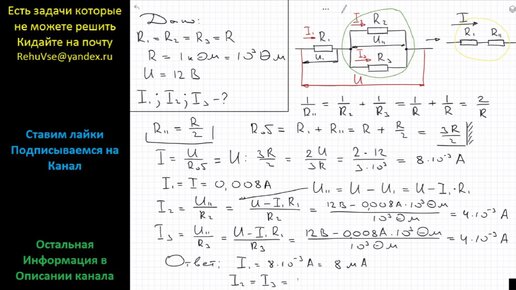 Есть задачи которые
не можете решить
Кидайте на почту
RehuVse@yandex.ru
Ставим лайки
Подписываемся на
Канал
Остальная
Информация в
Описании канала
Дано:
R₁ = R₂ = R₃ = R
R = 1 кОм = 10³ Ом
U = 12 В
I₁; I₂; I₃ - ?
I₁ R₁ U₁ I₂ R₂ U₁₁ I₃ R₃ U
I R₁ R₁₁
1/R₁₁ = 1/R₂ + 1/R₃ = 1/R + 1/R = 2/R
R₁₁ = R/2 Rоб = R₁ + R₁₁ = R + R/2 = 3R/2
I = U/Rоб = U : 3R/2 = 2U/3R = 2·12/3·10³ = 8·10⁻³ А
I₁ = I = 0,008А U₁₁ = U - U₁ = U - I₁·R₁
I₂ = U₁₁/R₂ = U - I₁R₁/R₂ = 12В - 0,008А·10³Ом/10³Ом = 4·10⁻³ А
I₃ = U₁₁/R₃ = U - I₁R₁/R₃ = 12В - 0,008А·10³Ом/10³Ом = 4·10⁻³ А
Ответ: I₁ = 8·10⁻³А = 8 мА
I₂ = I₃ =